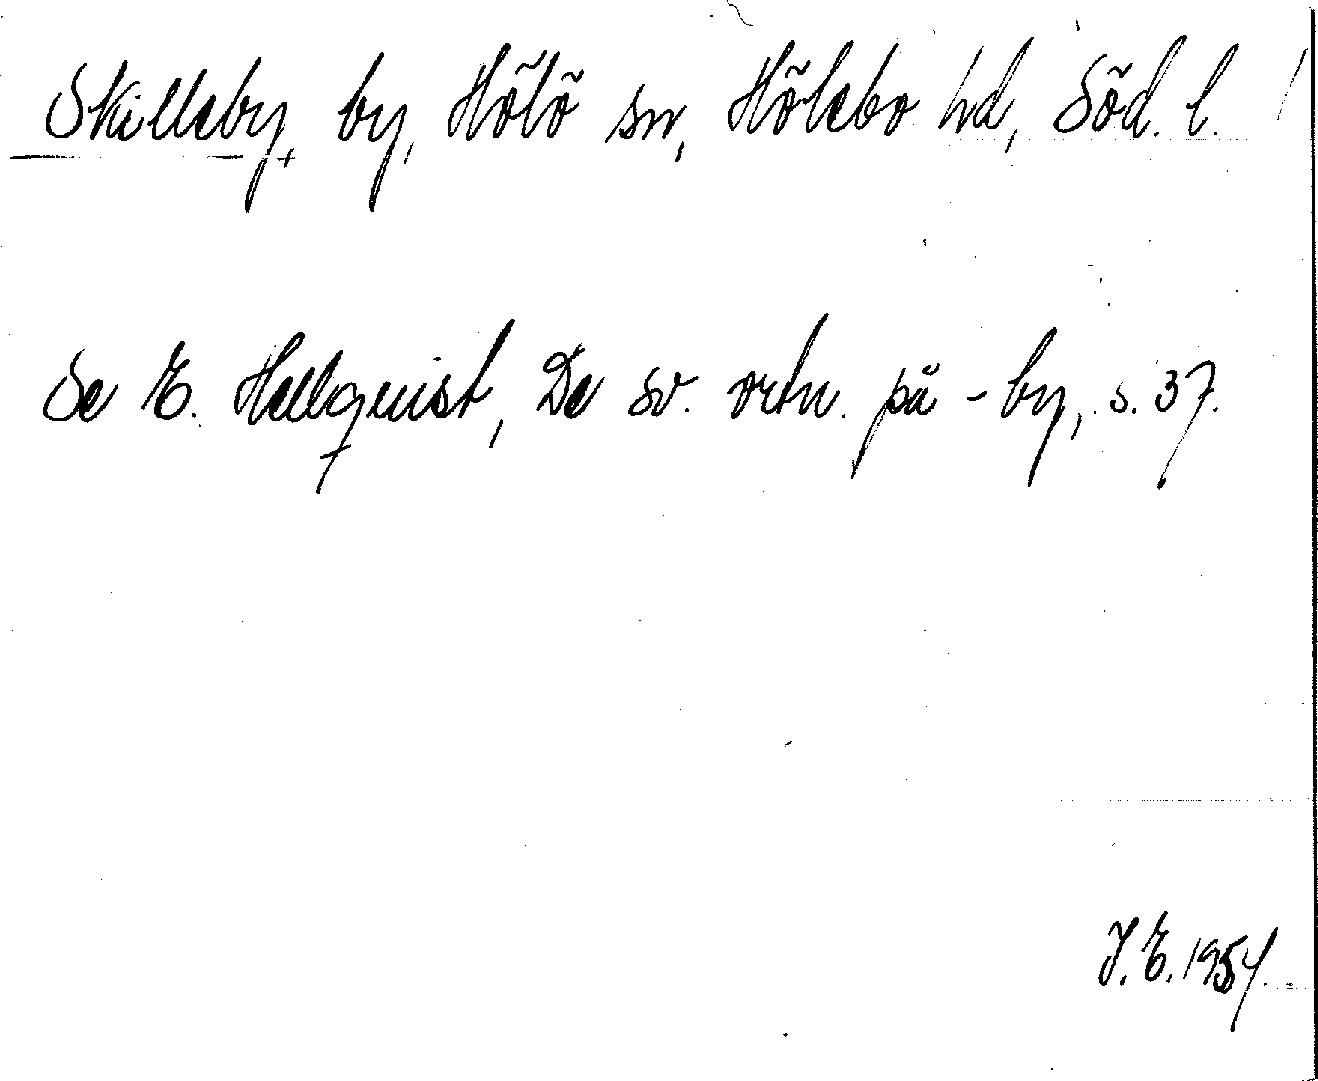 Skilleby, by, Hölö sn, Hölebo hd, Söd. l.
Se E. Hellquist, De sv. ortn. på -by, s. 37.
J. E. 1954.